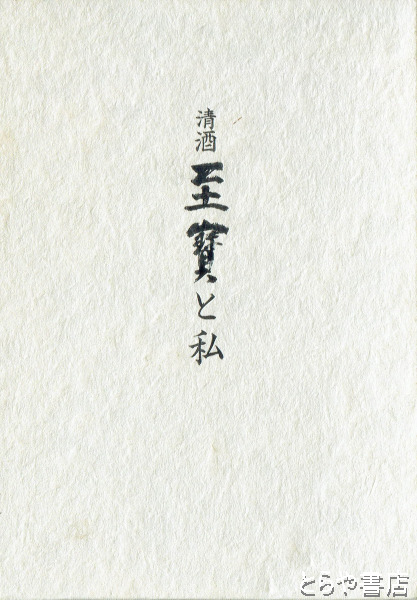 清酒
至寶と私
とらや書店